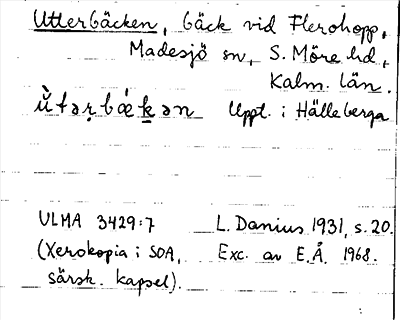 Utterbäcken, bäck vid Flerohopp,
Madesjö sn, S. Möre hd,
Kalm. län.
ù̀tərbǽkən Uppt. i Hälleberga
ULMA 3429:7 L. Danius 1931, s. 20.
(Xerokopia i SOA, Exc. av E.Å. 1968.
särsk. kapsel).